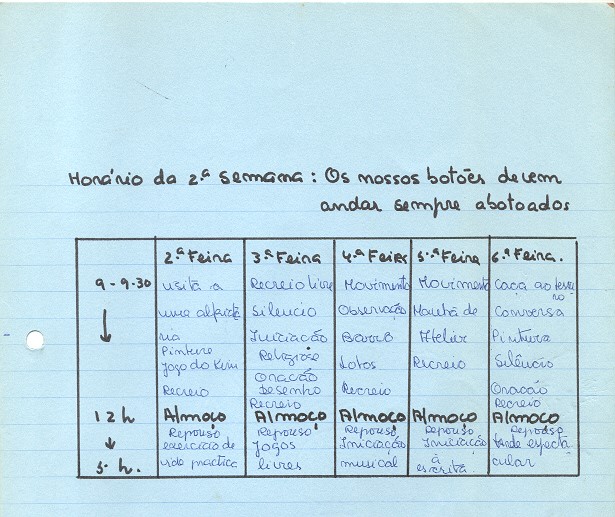 Horário da 2.ª semana: Os nossos botões devem
andar sempre abotoados
2.ª Feira 3.ª Feira 4.ª Feira 5.ª Feira 6.ª Feira.
9 - 9.30 visita a Recreio livre Movimento Movimento Caça ao tesouro
uma alfaiataria Silencio Observação Manhã de Conversa
Pinture Iniciação Barro Atelier Pintura
Jogo do Kim Religiosa Lotos Recreio Silêncio
Oração Oração
Recreio Desenho Recreio Recreio
Recreio
12 h Almoço Almoço Almoço Almoço Almoço
Repouso Repouso Repouso Repouso Repouso
exercício de Jogos Iniciação Iniciação tarde especta
vida practica livres musical à cular
5. h. escrita